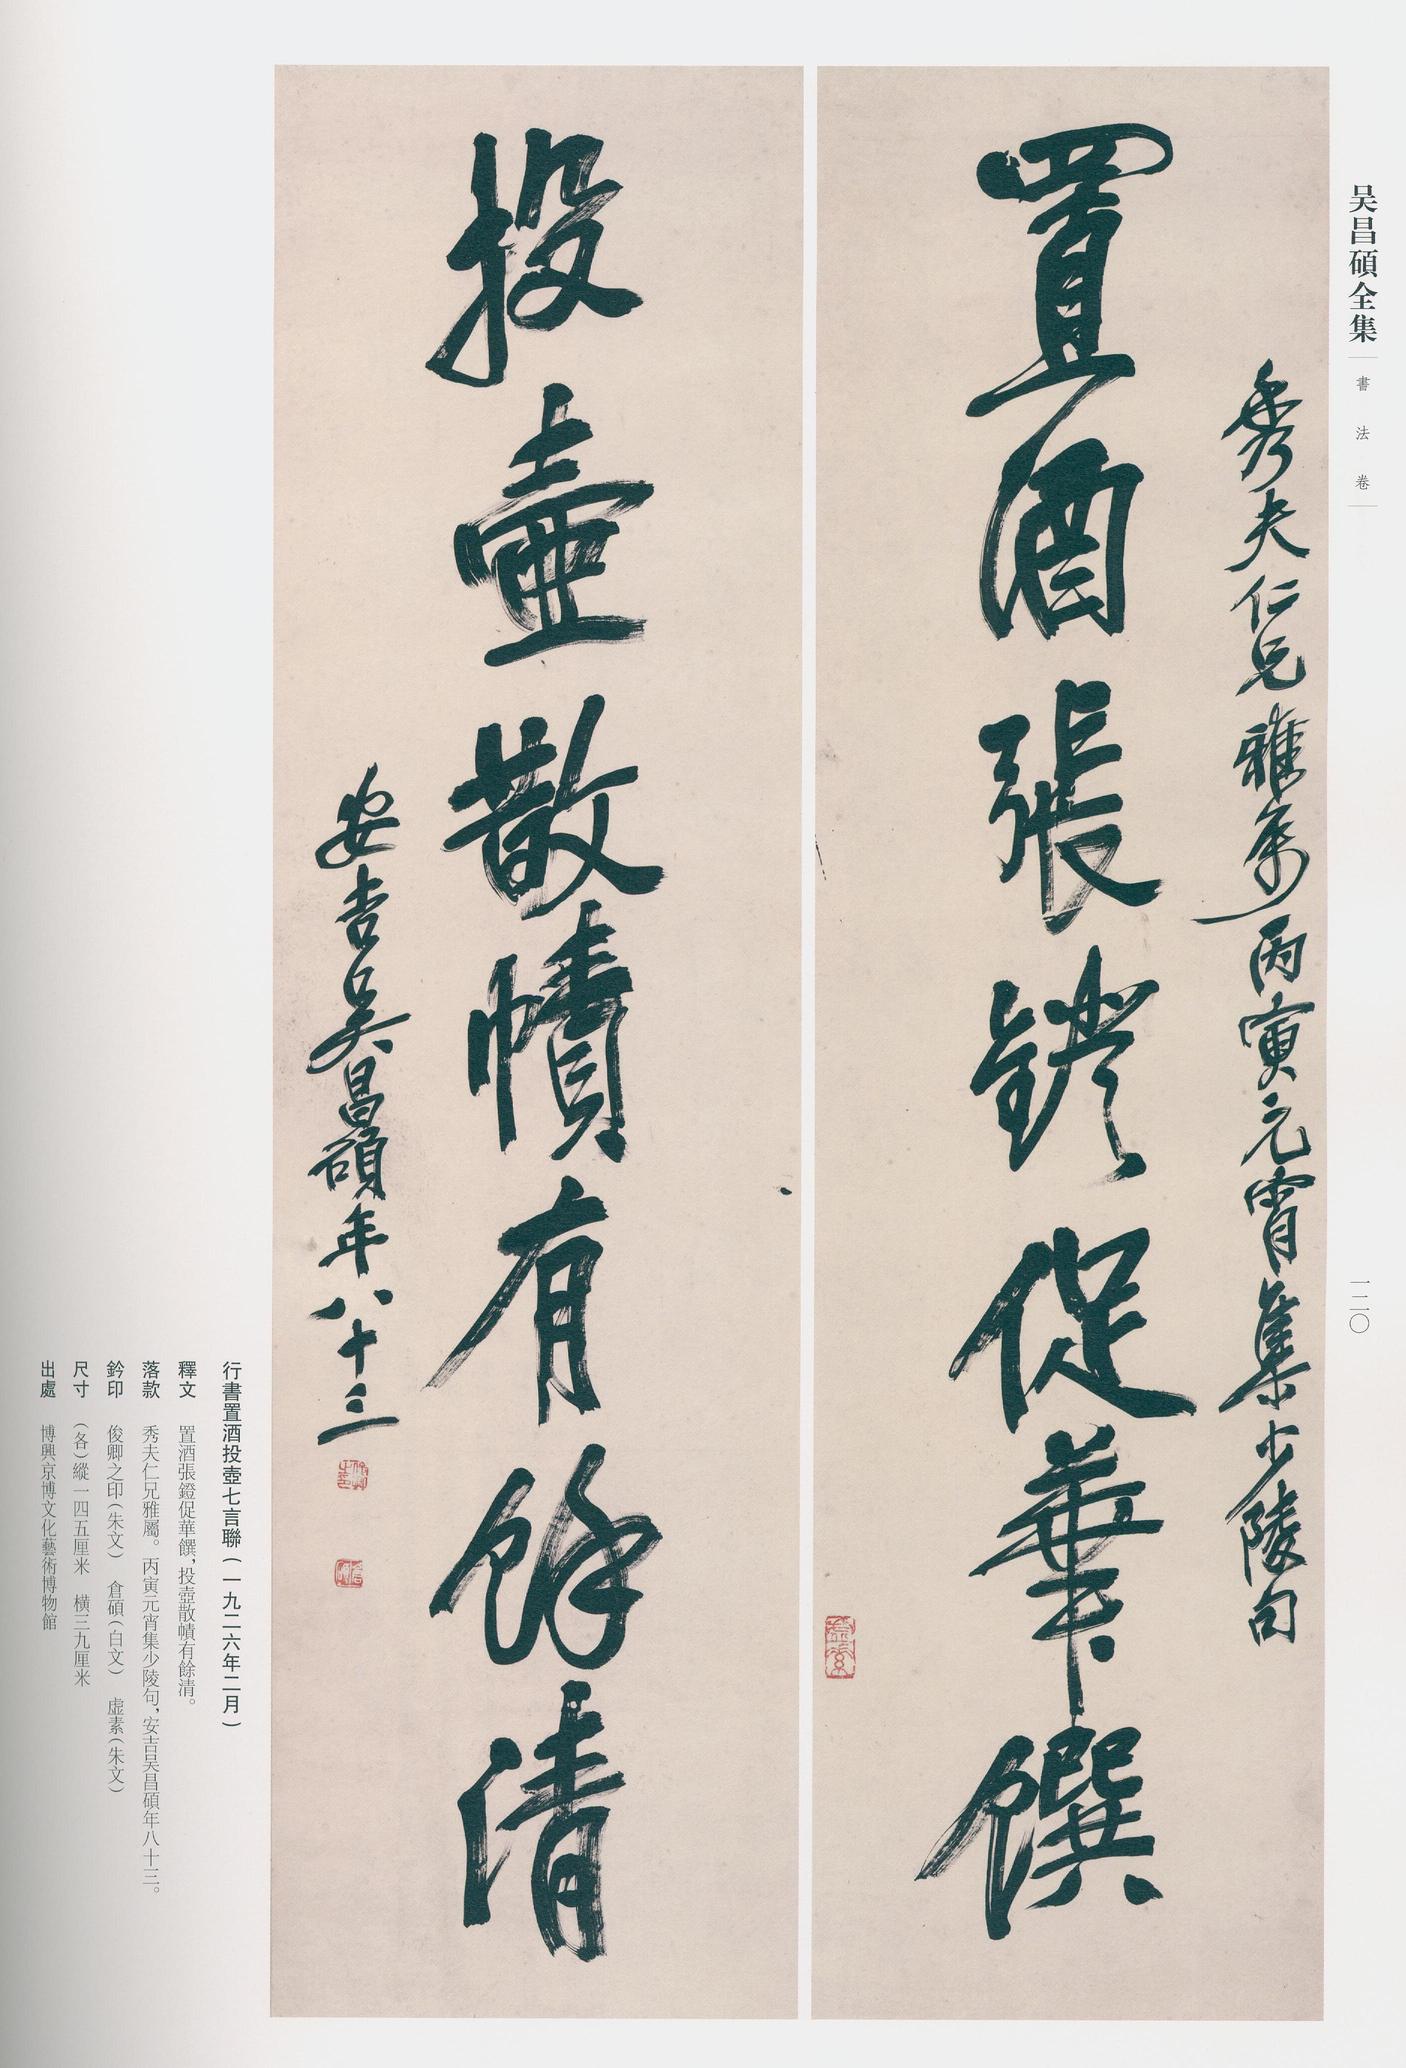 吴昌碩全集
書法卷
一二〇
秀夫仁兄雅屬丙寅元宵集少陵句
置酒張鐙促華饌
投壺散幘有餘清
安吉吴昌碩年八十三
行書置酒投壺七言聯（一九二六年二月）
釋文　置酒張鐙促華饌，投壺散幘有餘清。
落款　秀夫仁兄雅屬。丙寅元宵集少陵句，安吉吴昌碩年八十三。
鈐印　俊卿之印（朱文）　倉碩（白文）　虚素（朱文）
尺寸　（各）縱一四五厘米　橫三九厘米
出處　博興京博文化藝術博物館